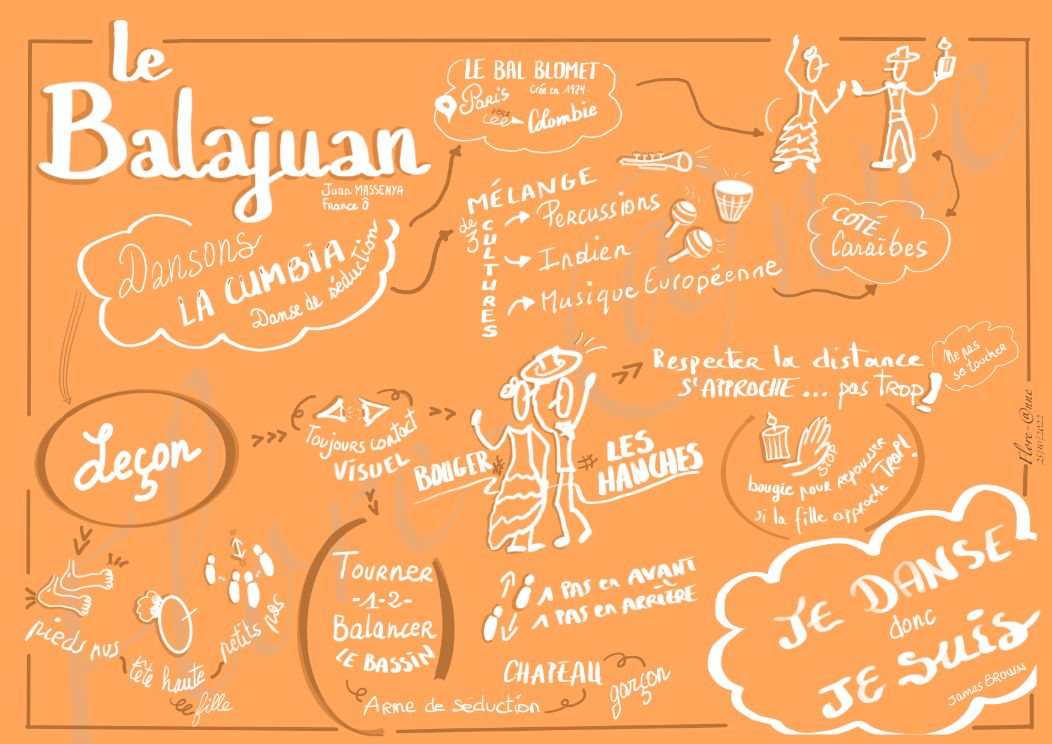 le
Balajuan
Juan MASSENYA
France Ô
LE BAL BLOMET
- Crée en 1924 -
Paris
vers
Colombie
Dansons
LA CUMBIA
Danse de séduction
MÉLANGE
de 3
CULTURES
Percussions
Indien
Musique Européenne
COTÉ
Caraïbes
Leçon
Toujours contact
VISUEL
BOUGER
LES
HANCHES
Respecter la distance
S'APPROCHE ... pas TROP !
Ne pas
se toucher
STOP
bougie pour repousser
si la fille approche TROP!
pieds nus
tête haute
fille
petits pas
TOURNER
-1-2-
Balancer
LE BASSIN
1 PAS en AVANT
1 PAS en ARRIÈRE
CHAPEAU
garçon
Arme de séduction
JE DANSE
donc
JE SUIS
James BROWN
Flore-@nne
25/10/2022